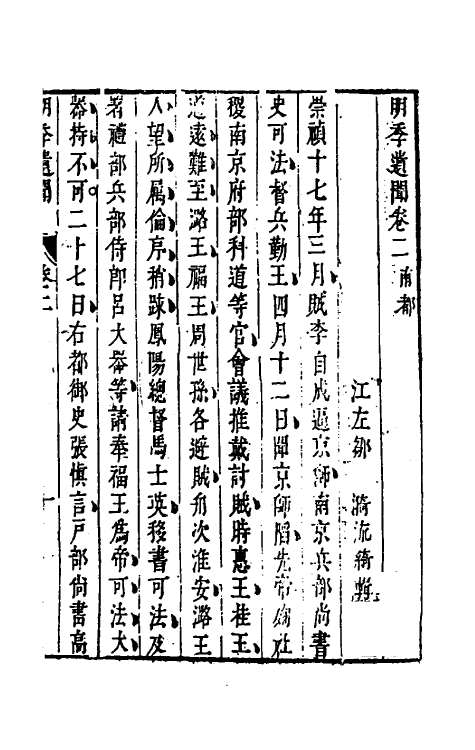 明季遺聞卷二 南都
江左鄒 漪流綺
崇禎十七年三月賊李自成逼京師南京兵部尚書
史可法督兵勤王四月十二日聞京師陷先帝殉社
稷南京府部科道等官會議推戴討賊時惠王桂王
道遠難至潞王福王周世孫各避賊舟次淮安潞王
人望所屬倫序稍踈鳳陽總督馬士英移書可法及
署禮部兵部侍郎呂大器等請奉福王為帝可法大
器持不可二十七日右都御史張慎言戶部尚書高
明季遺聞 卷二 一